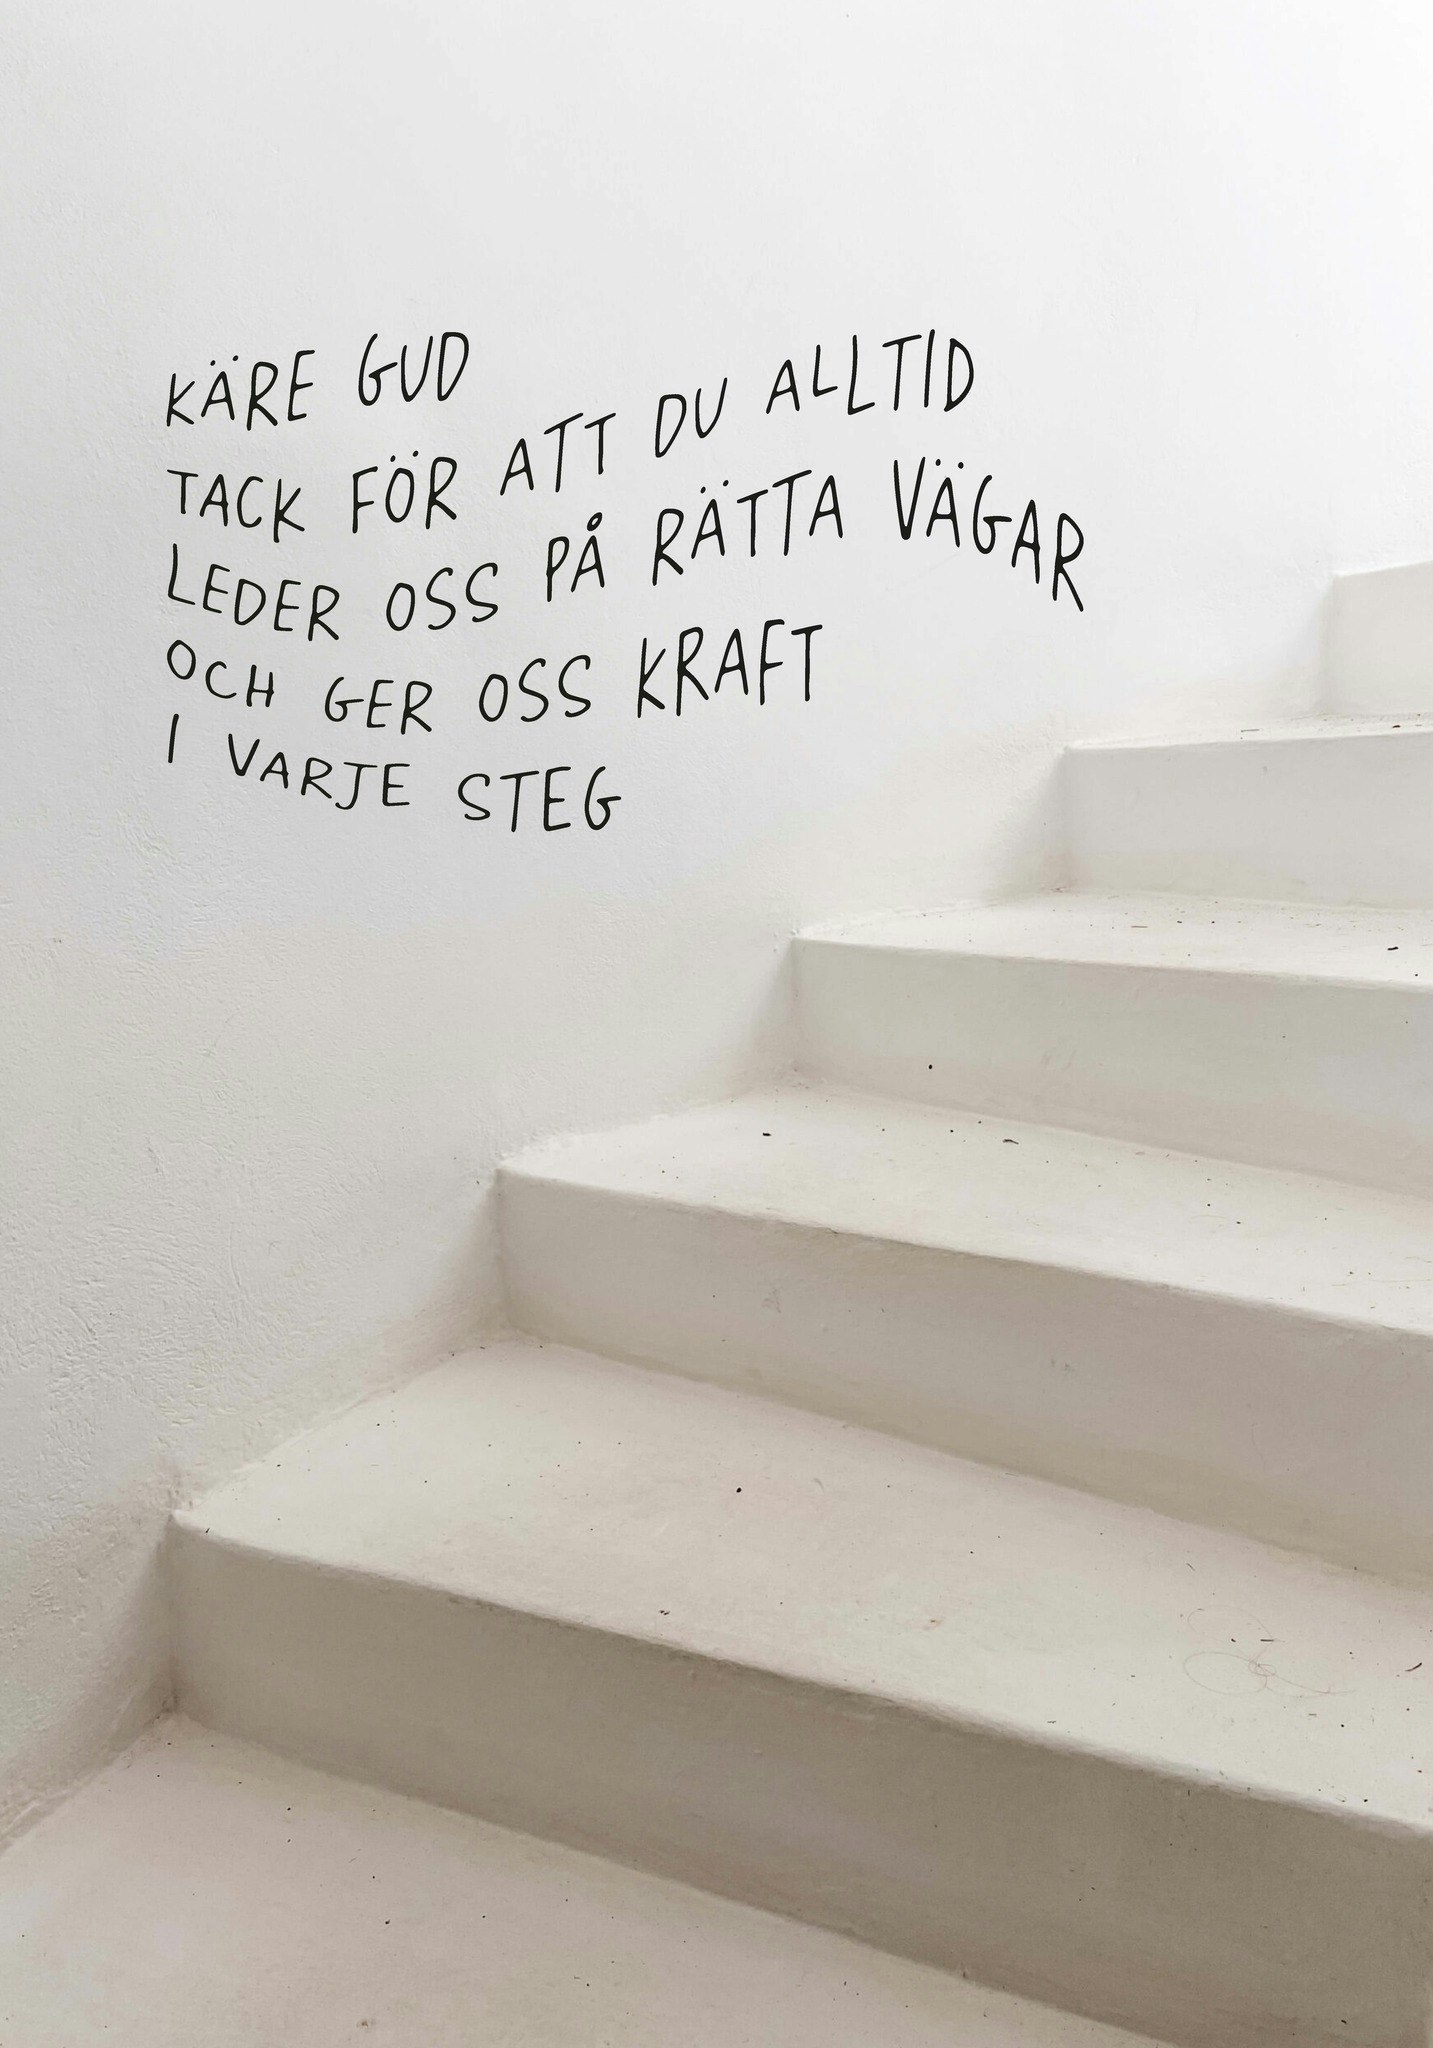 KÄRE GUD
TACK FÖR ATT DU ALLTID
LEDER OSS PÅ RÄTTA VÄGAR
OCH GER OSS KRAFT
I VARJE STEG